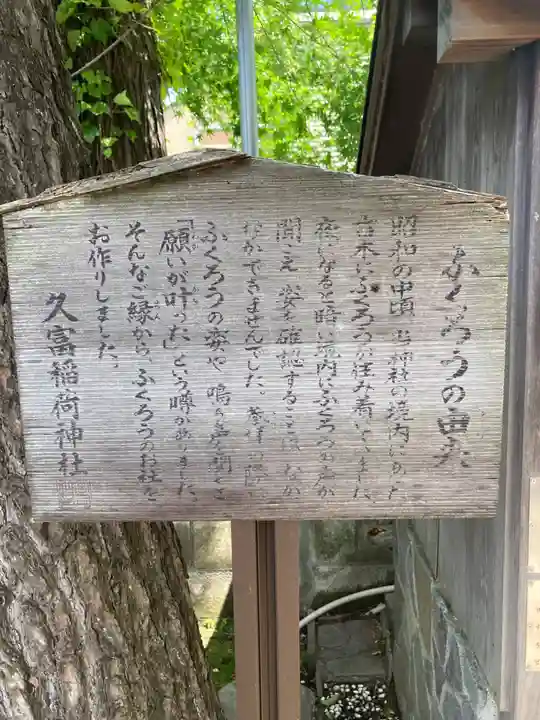 ふくろうの由来
昭和の中頃 当神社の境内にあった
古木にふくろうが住み着いていました。
夜になると暗い境内にふくろうの声が
聞こえ 姿を確認することは なか
なかできませんでした。参拝の際に
ふくろうの姿や 鳴き声を聞くと
「願いが叶った」という噂がありました。
そんなご縁から、ふくろうのお社を
お作りしました。
久富稲荷神社